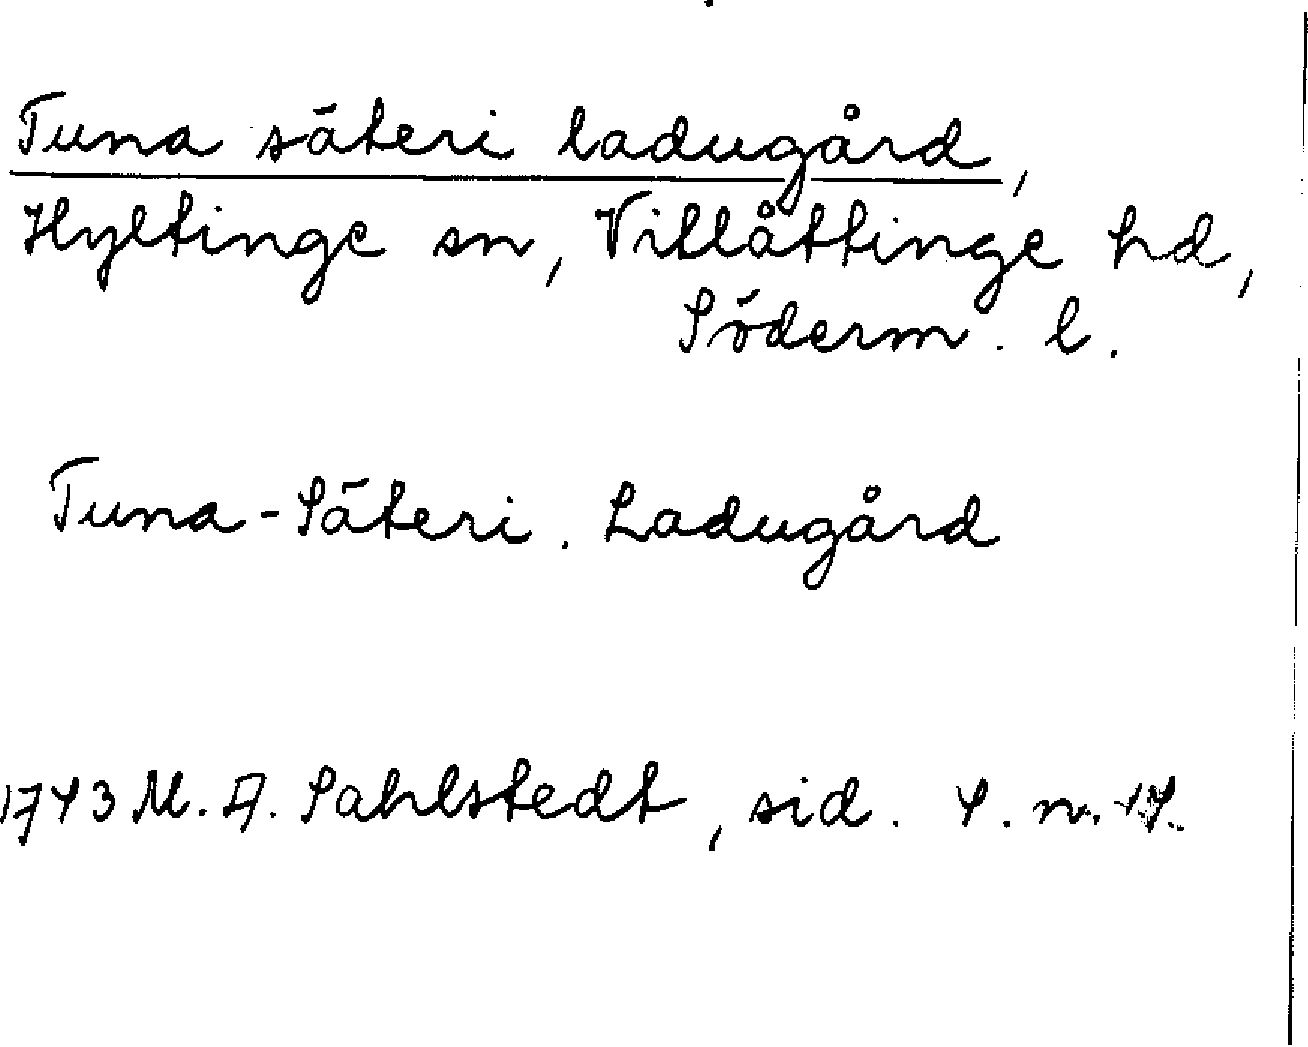 Tuna säteri ladugård,
Hyltinge sn, Villåttinge hd,
Söderm. l.
Tuna-Säteri. Ladugård
1743 M. A. Sahlstedt, sid. 4. n.